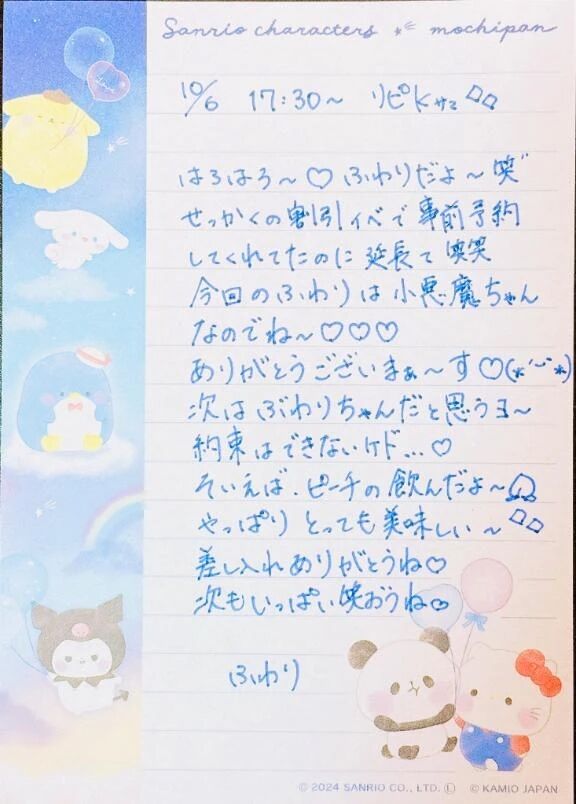 Sanrio characters mochipan
10/6 17:30~ リピKサマ
はろはろ~♡ ふわりだよ~笑
せっかくの割引イベで事前予約
してくれてたのに延長て笑笑
今回のふわりは小悪魔ちゃん
なのでね~♡♡♡
ありがとうございまぁ~す♡(*´˘`*)
次はぶわりちゃんだと思うヨ~
約束はできないケド…♡
そいえば、ピーチの飲んだよ~
やっぱりとっても美味しい~
差し入れありがとうね♡
次もいっぱい笑おうね♡
ふわり
© 2024 SANRIO CO., LTD. Ⓛ © KAMIO JAPAN